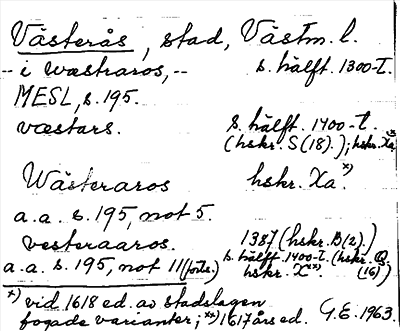 Västerås, stad, Västm. l.
-- i wæstraros, -- s. hälft. 1300-t.
MESL, s. 195.
væstars. s. hälft. 1400-t.
(hskr. S (18).); hskr. Xa
Wästeraros hskr. Xa. x)
a.a. s. 195, not 5.
vesteraaros. 1387 (hskr. B (2).)
s. hälft. 1400-t. (hskr. Q (16))
a.a. s. 195, not 11 (forts.) hskr. X xx)
x) vid 1618 ed. av stadslagen
fogade varianter; xx) 1617 års ed. G.E. 1963.